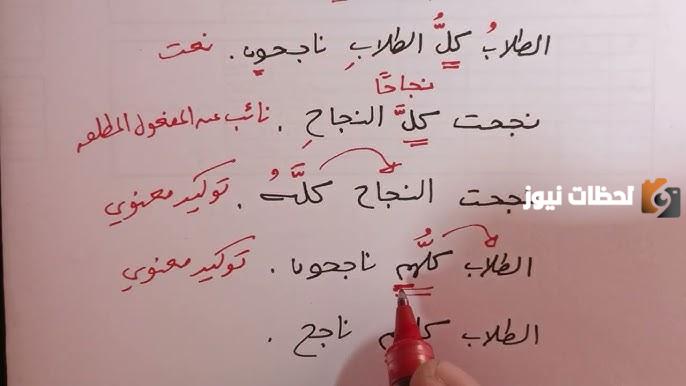 الطلابُ كلُّ الطلابِ ناجحون. نعت
نجاحًا
نجحت كلَّ النجاحِ. نائب عن المفعول المطلق
نجحت النجاح كلَّهُ. توكيد معنوي
لحظات نيوز
الطلاب كلُّهم ناجحون. توكيد معنوي
الطلاب كلهم ناجح.